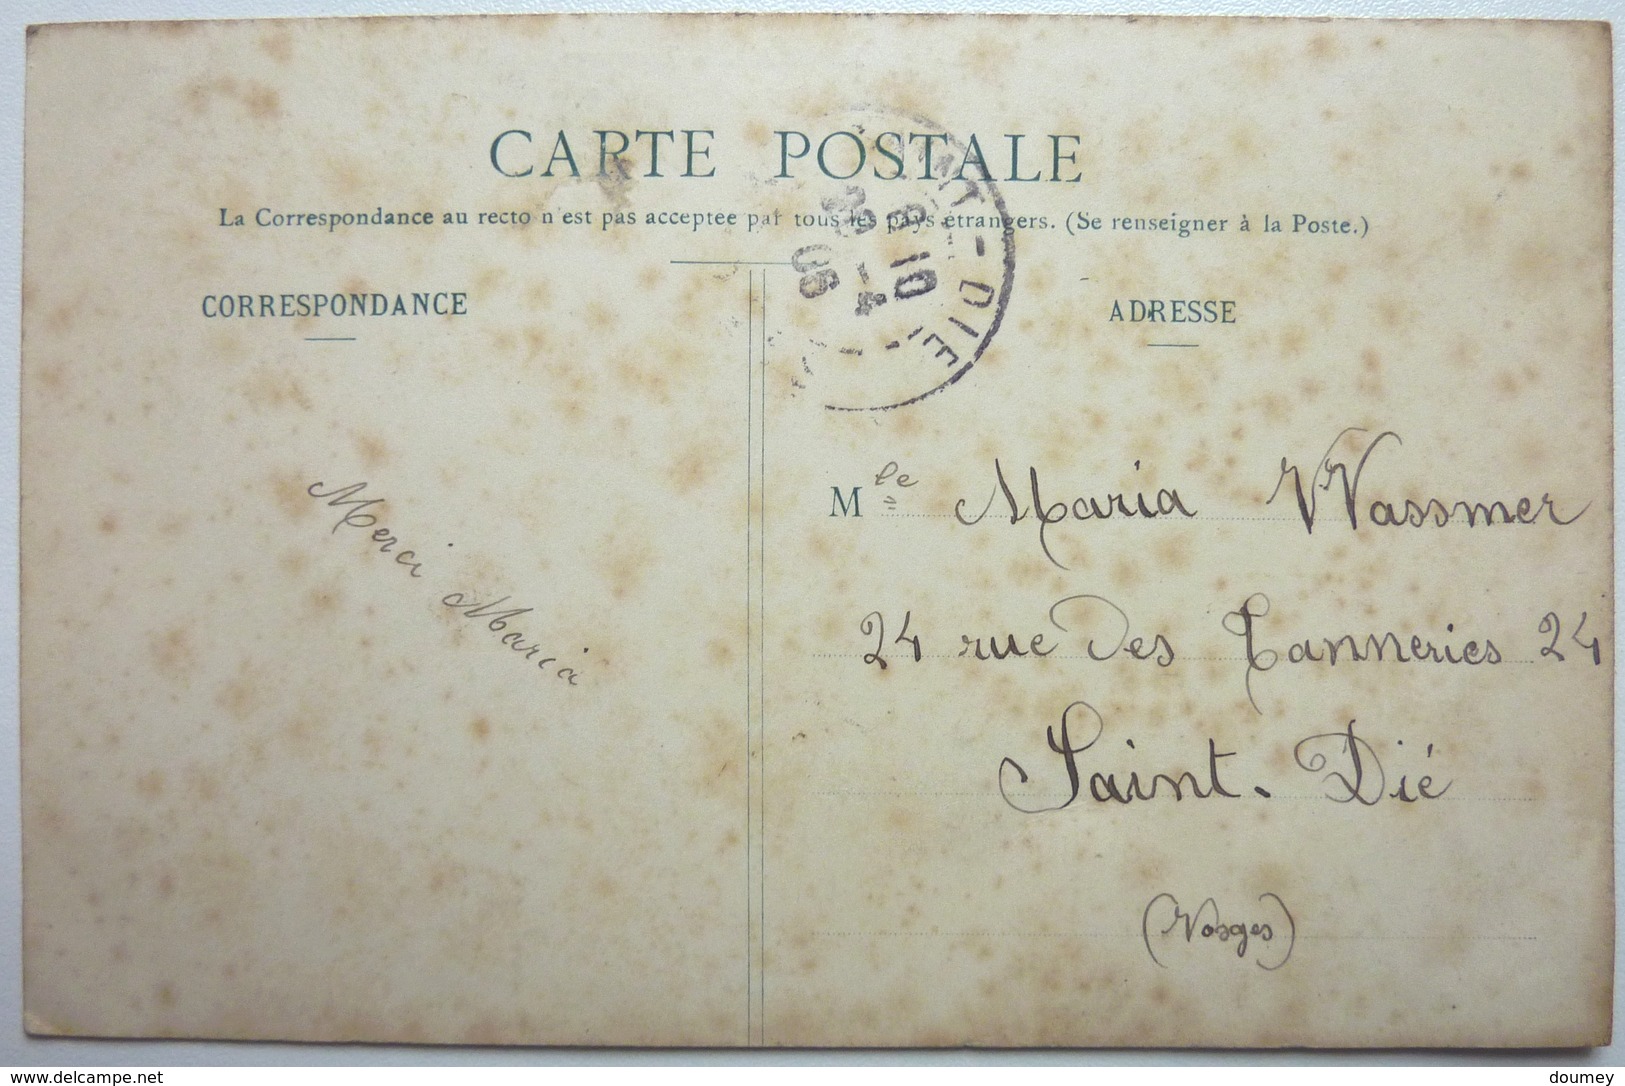 CARTE POSTALE
La Correspondance au recto n'est pas acceptée par tous les pays étrangers. (Se renseigner à la Poste.)
CORRESPONDANCE
ADRESSE
DIÉ
10
4
06
Merci Maria
Mle Maria Wassmer
24 rue des Tanneries 24
Saint-Dié
(Vosges)
www.delcampe.net
doumey